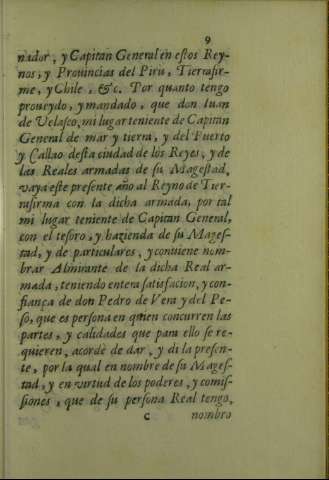 9
nador, y Capitan General en estos Rey-
nos, y Prouincias del Piru, Tierrafir-
me, y Chile, &c. Por quanto tengo
proueydo, y mandado, que don Iuan
de Velasco, mi lugar teniente de Capitan
General de mar y tierra, y del Puerto
y Callao desta ciudad de los Reyes, y de
las Reales armadas de su Magestad,
vaya este presente año al Reyno de Tier-
rafirma con la dicha armada, por tal
mi lugar teniente de Capitan General,
con el tesoro, y hazienda de su Mages-
tad, y de particulares, y conuiene nom-
brar Almirante de la dicha Real ar-
mada, teniendo entera satisfacion, y con-
fiança de don Pedro de Vera y del Pe-
so, que es persona en quien concurren las
partes, y calidades que para ello se re-
quieren, acordè de dar, y di la presen-
te, por la qual en nombre de su Mages-
tad, y en virtud de los poderes, y comis-
siones, que de su persona Real tengo,
C nombro